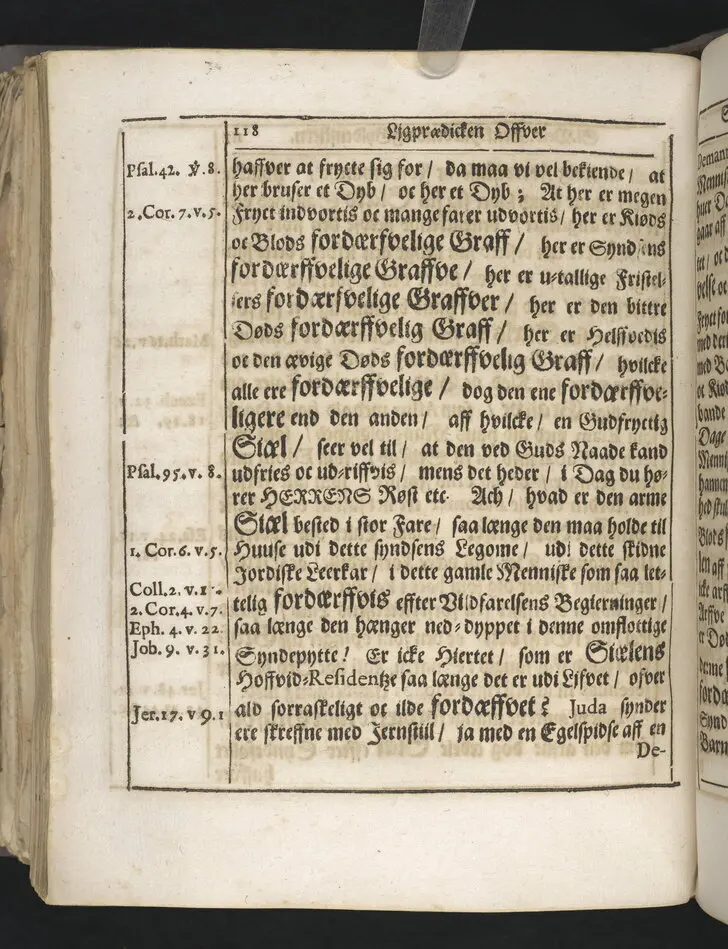 118 Ljgprædicken Offver
Psal.42. ℣.8. haffver at frycte sig for / da maa vi vel bekiende / at
her bruser et Dyb / oc her et Dyb ; At her er megen
2.Cor.7.v.5. Fryct indvortis oc mange farer udvortis / her er Kiøds
oc Blods fordærfvelige Graff / her er Syndens
fordærffvelige Graffve / her er u-tallige Fristel-
sers fordærfvelige Graffver / her er den bittre
Døds fordærffvelig Graff / her er Helffvedis
oc den ævige Døds fordærffvelig Graff / hvilcke
alle ere fordærffvelige / dog den ene fordærffve-
ligere end den anden / aff hvilcke / en Gudfryctig
Siæl / seer vel til / at den ved Guds Naade kand
Psal.95.v.8. udfries oc ud-riffvis / mens det heder / i Dag du hø-
rer HERRENS Røst etc. Ach / hvad er den arme
Siæl bested i stor Fare / saa længe den maa holde til
1. Cor.6. v.5. Huuse udi dette syndsens Legome / udi dette skidne
Jordiske Leerkar / i dette gamle Menniske som saa let-
Coll.2. v.1
2.Cor.4. v.7. telig fordærffvis effter Vildfarelsens Begierninger /
Eph. 4. v. 22 saa længe den hænger ned-dyppet i denne omflottige
Job. 9. v. 31. Syndepytte! Er icke Hiertet / som er Siælens
Hoffvid-Residentze saa længe det er udi Lifvet / ofver
Jer.17. v 9.1 ald sorraskeligt oc ilde fordæffvet? Juda synder
ere skreffne med Jernstiil / ja med en Egelspidse aff en
De-